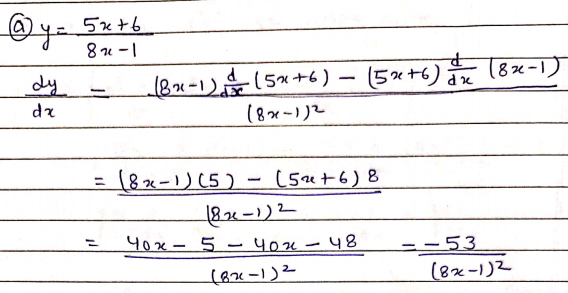 ⓐ y = 5x+6 / 8x-1
dy/dx = (8x-1) d/dx (5x+6) - (5x+6) d/dx (8x-1) / (8x-1)²
= (8x-1)(5) - (5x+6) 8 / (8x-1)²
= 40x - 5 - 40x - 48 / (8x-1)² = -53 / (8x-1)²